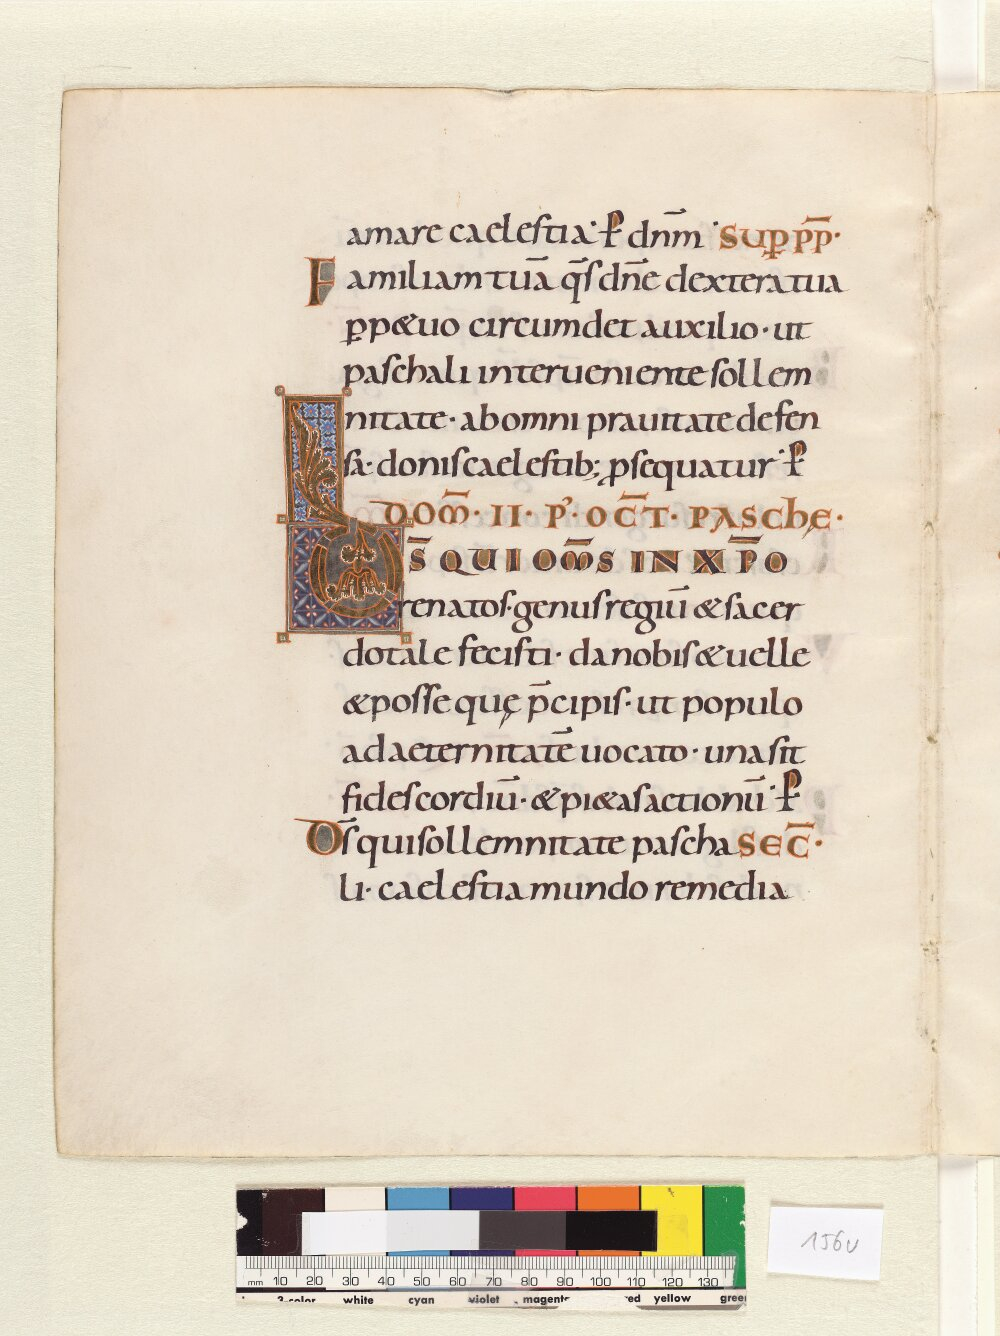 amare caelestia· ꝑ dnm̄ · SUP PP̄·
Familiam tuā qs̄ dn̄e dextera tua
ꝑp&uo circumdet auxilio· ut
paschali interueniente sollem
nitate· ab omni prauitate defen
sa· donis caelestib; ꝓsequatur· ꝑ
DOM̄· II· P' OCT̄· PASCHE·
DS̄ QUI OM̄S IN XP̄O
renatos· genus regiū & sacer
dotale fecisti· da nobis & uelle
& posse quę p̄cipis· ut populo
ad aeternitatē uocato· una sit
fides cordiū· & pi&as actionū· ꝑ
Ds̄ qui sollemnitate pascha SEC̄·
li· caelestia mundo remedia
156v
mm 10 20 30 40 50 60 70 80 90 100 110 120 130
3-color white cyan violet magenta red yellow green